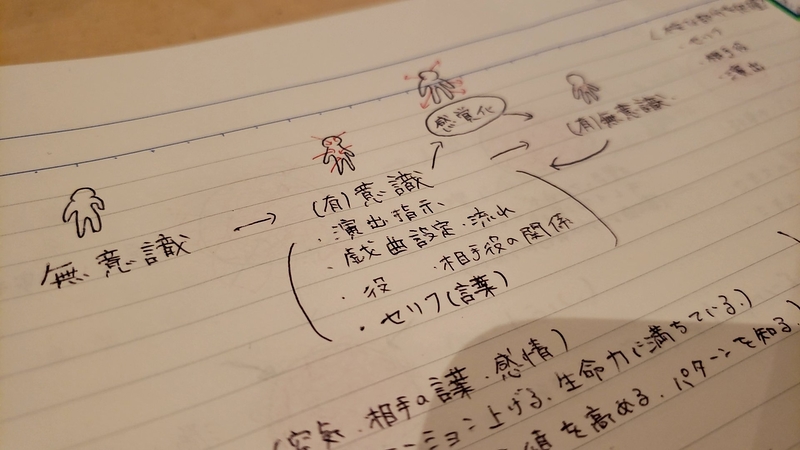 ・セリフ
・相手役
・演出
感覚化
(有)無意識
(有)意識
・演出指示
・戯曲設定・流れ
・役 ・相手役の関係
・セリフ(言葉)
無意識
(空気、相手の言葉、感情)
ーション上げる、生命力に満ちている。)
値を高める、パターンを知る)